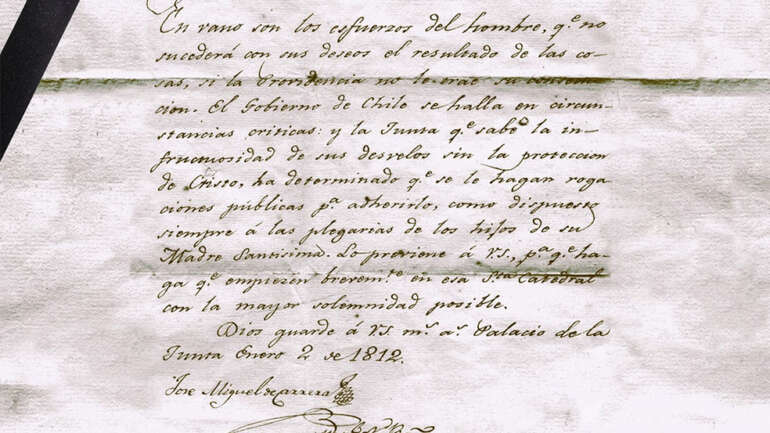 En vano son los esfuerzos del hombre, q.e no
sucederá con sus deseos el resultado de las co-
sas, si la Providencia no le trae su
cion. El Gobierno de Chile se halla en circun-
stancias criticas: y la Junta q.e sabe la in-
fructuosidad de sus desvelos sin la proteccion
de Cristo, ha determinado q.e se le hagan roga
ciones públicas p.a adherirlo, como dispuesto
siempre á las plegarias de los hijos de su
Madre Santisima. Lo previene á V.S., p.a q.e ha-
ga q.e empiezen brevem.te en esa S.ta Catedral
con la mayor solemnidad posible.
Dios guarde á V.S. m.s a.s Palacio de la
Junta Enero 2 de 1812.
Jose Miguel de Carrera